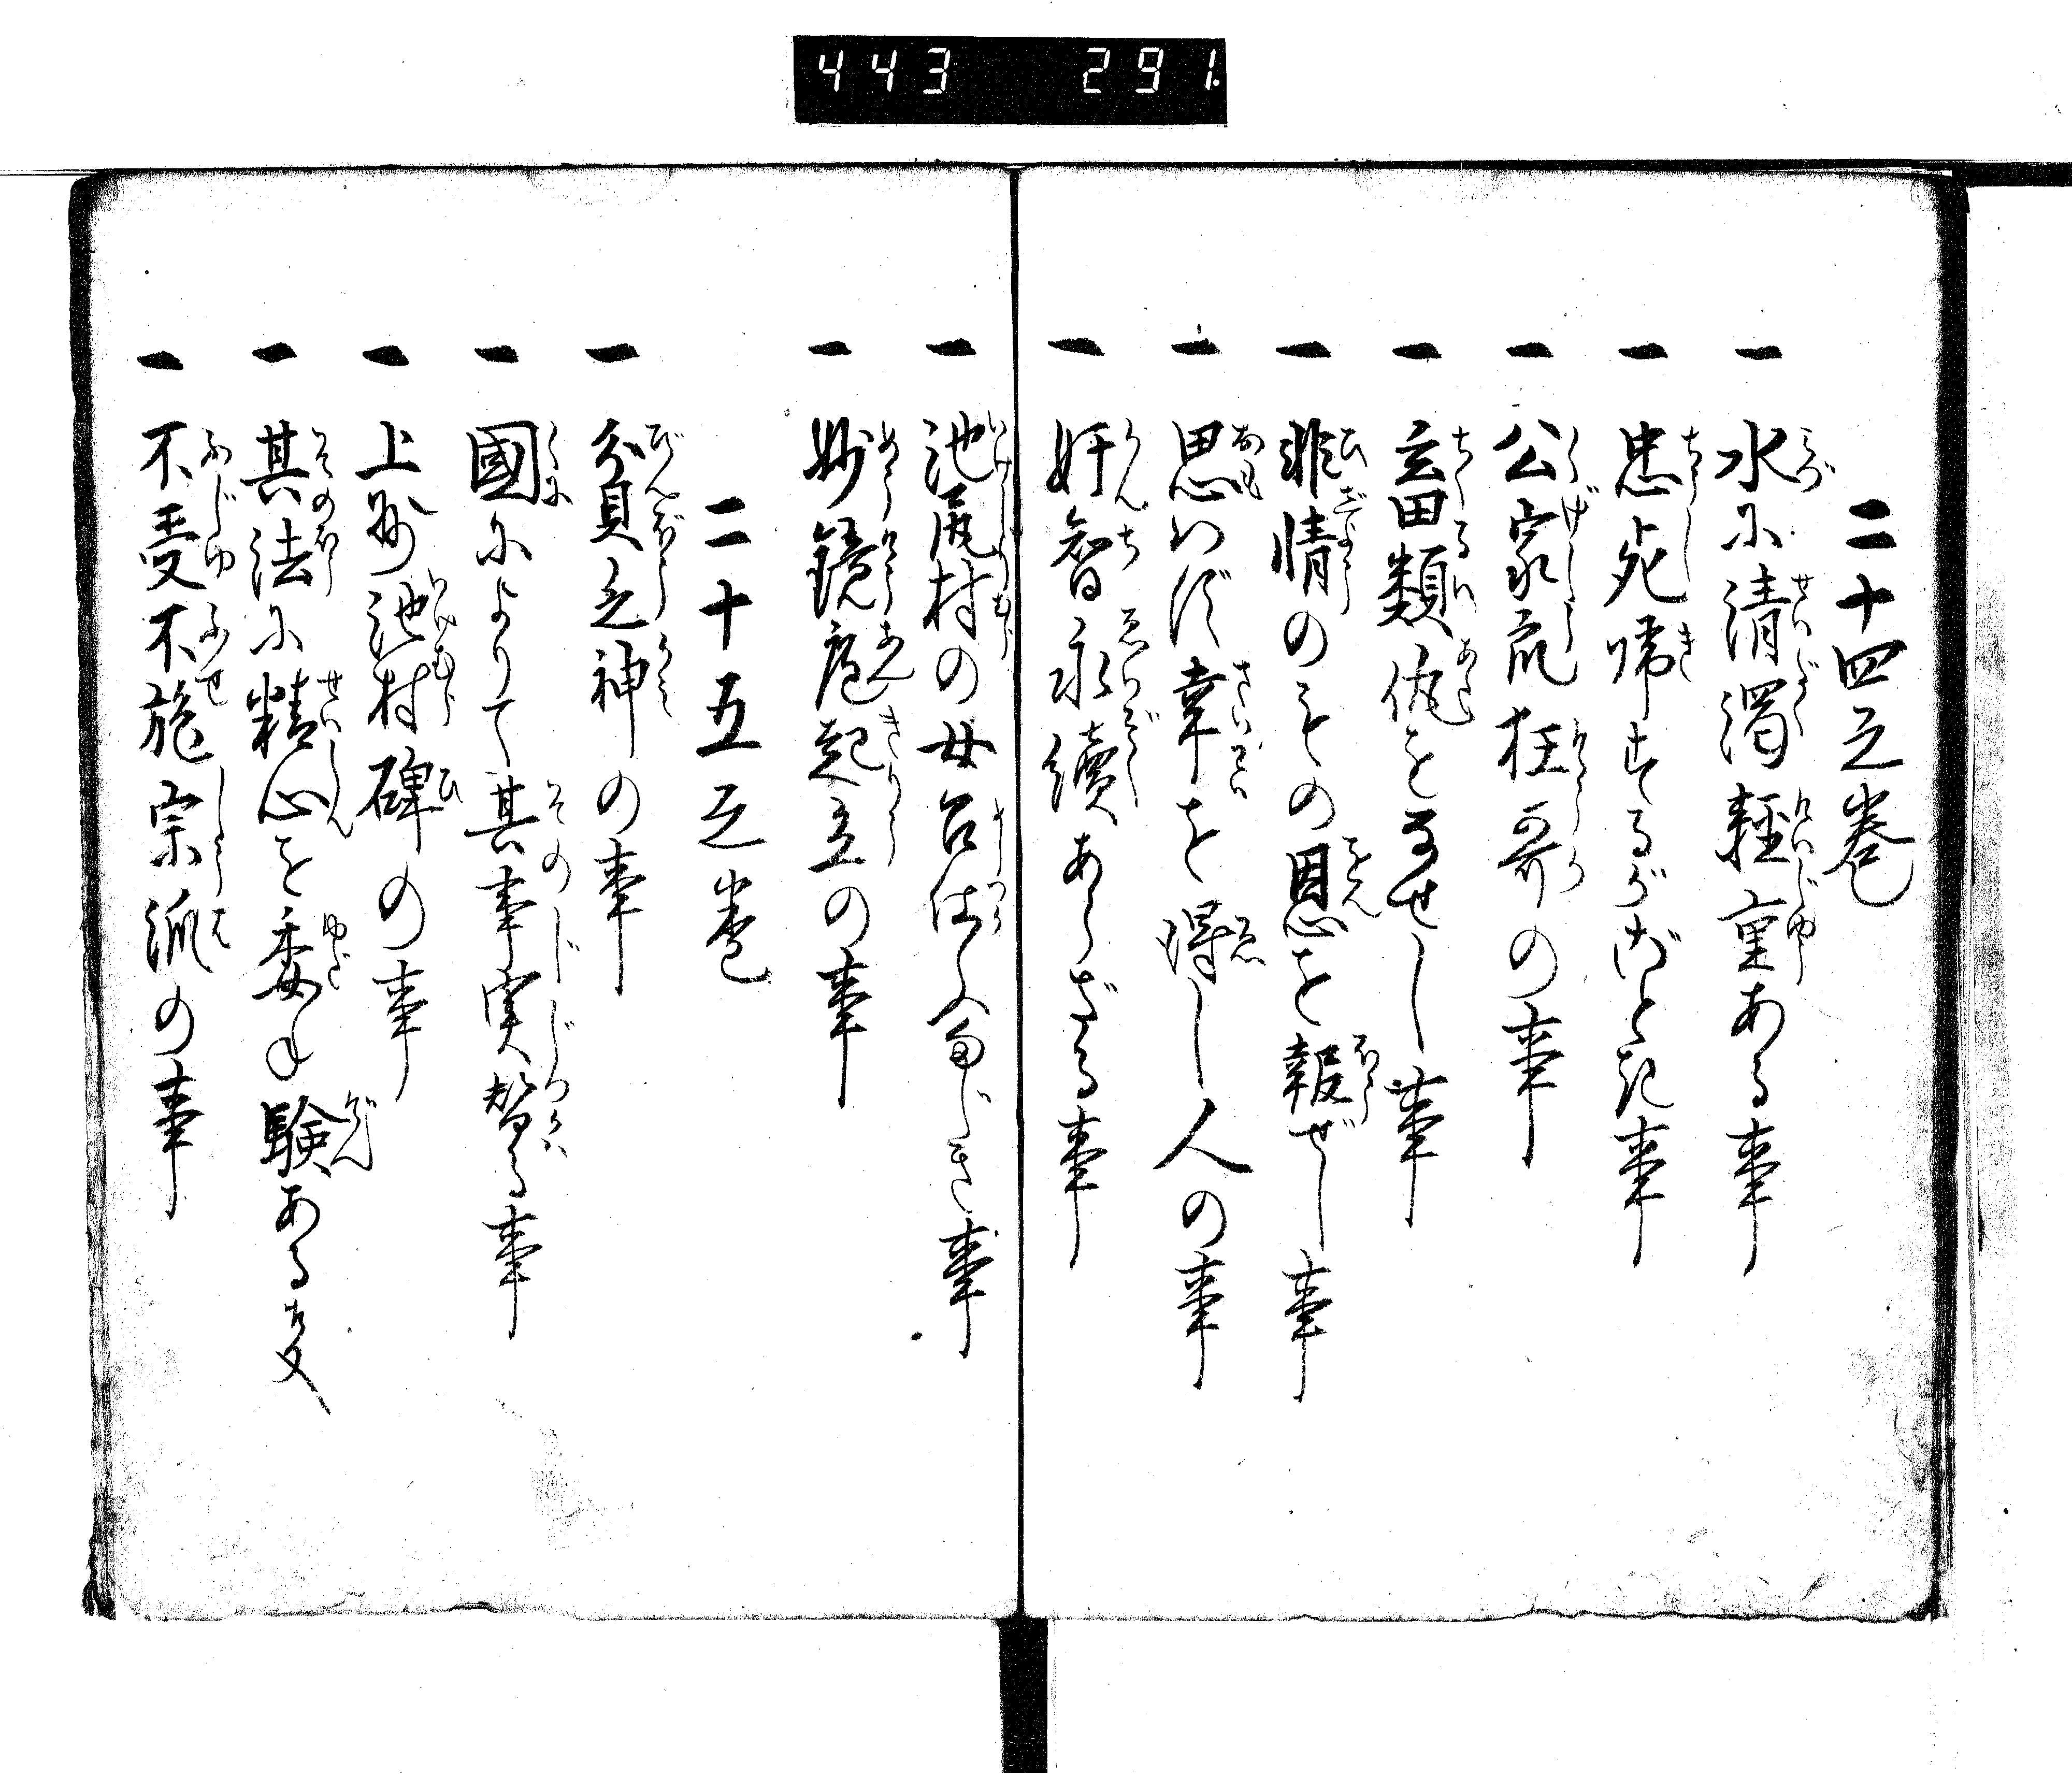 443 291
二十四之巻
一 水に清濁輕重ある事
一 忠死帰するがごとき事
一 公家衆狂哥の事
一 畜類仇をなせし事
一 非情のもの恩を報ぜし事
一 思はず幸を得し人の事
一 奸智永續あらざる事
一 池尻村の女召仕ふまじき事
一 妙鏡庵起立の事
二十五之巻
一 貧乏神の事
一 國によりて其事実替る事
一 上州池村碑の事
一 其法に精心を委ね験ある事
一 不受不施宗派の事